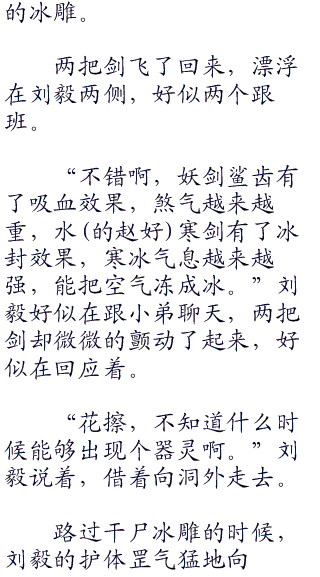 的冰雕。
两把剑飞了回来，漂浮
在刘毅两侧，好似两个跟
班。
“不错啊，妖剑鲨齿有
了吸血效果，煞气越来越
重，水(的赵好)寒剑有了冰
封效果，寒冰气息越来越
强，能把空气冻成冰。”刘
毅好似在跟小弟聊天，两把
剑却微微的颤动了起来，好
似在回应着。
“花擦，不知道什么时
候能够出现个器灵啊。”刘
毅说着，借着向洞外走去。
路过干尸冰雕的时候，
刘毅的护体罡气猛地向